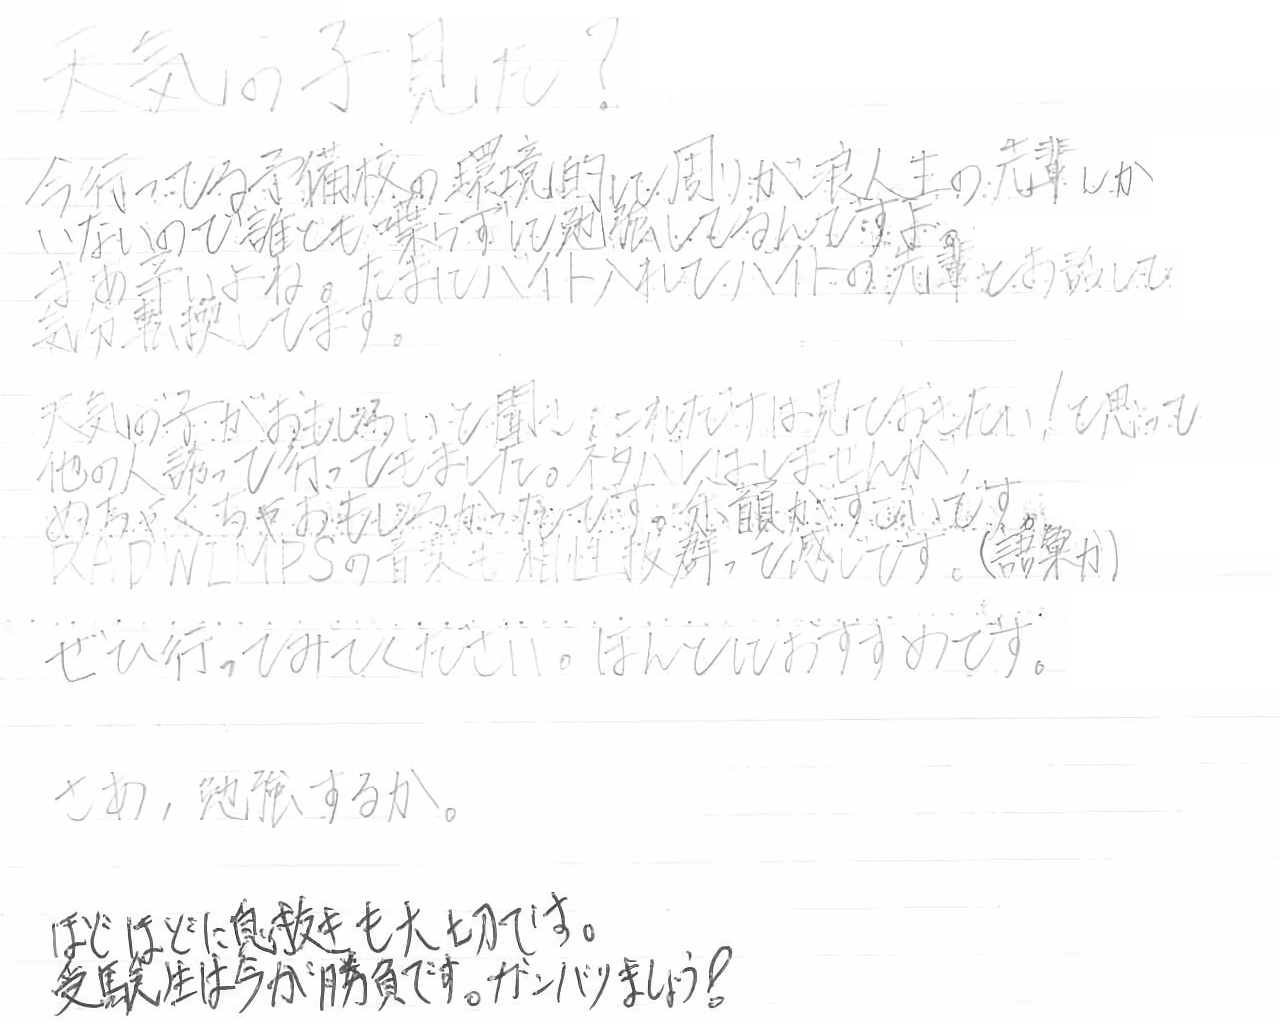 天気の子見た?
今行ってる予備校の環境的に周りが浪人生の先輩しか
いないので誰とも喋らずに勉強してるんですよ。
まあ辛いよね。たまにバイト入れてバイトの先輩とお話して
気分転換してます。
天気の子がおもしろいと聞き、これだけは見ておきたい!と思って
他の人誘って行ってきました。ネタバレはしませんが、
めちゃくちゃおもしろかったです。伏顔がすごいです
RADWIMPSの音楽も相性抜群って感じです。(語彙力)
ぜひ行ってみてください。ほんとにおすすめです。
さあ,勉強するか。
ほどほどに息抜きも大切です。
受験生は今が勝負です。ガンバリましょう!